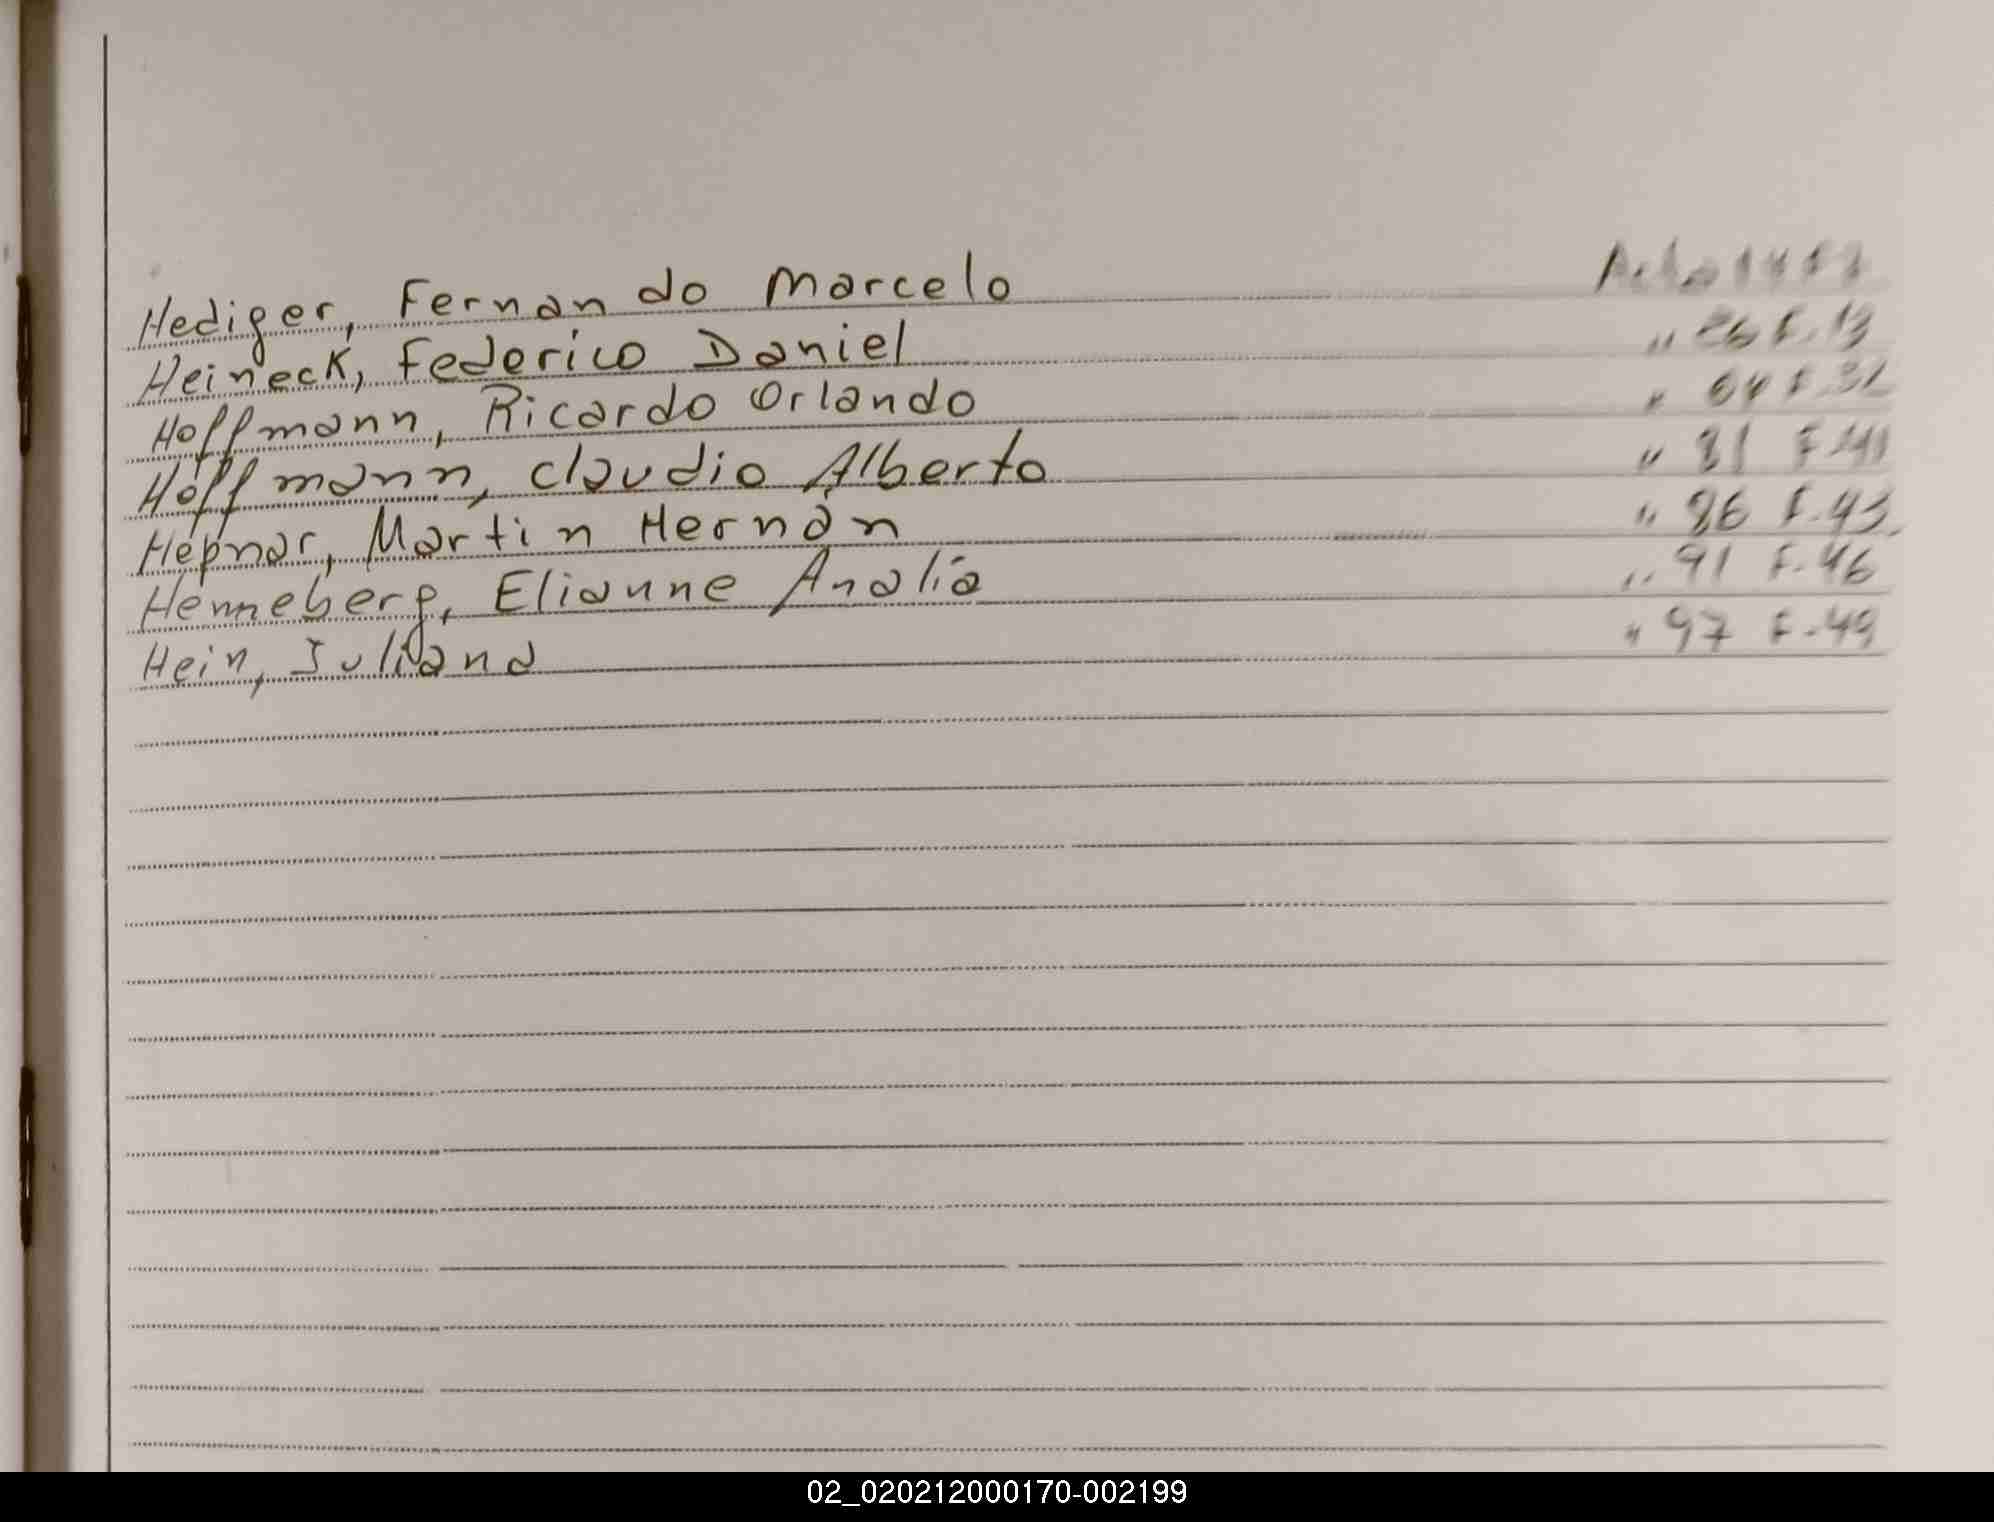 Hediger, Fernando Marcelo Acta
Heineck, Federico Daniel " 26 F. 13
Hoffmann, Ricardo Orlando " 64 F. 32
Hoffmann, Claudio Alberto " 81 F. 41
Hepnar, Martin Hernán " 86 F. 43
Henneberg, Elianne Analía " 91 F. 46
Hein, Juliana " 97 F. 49
02_020212000170-002199